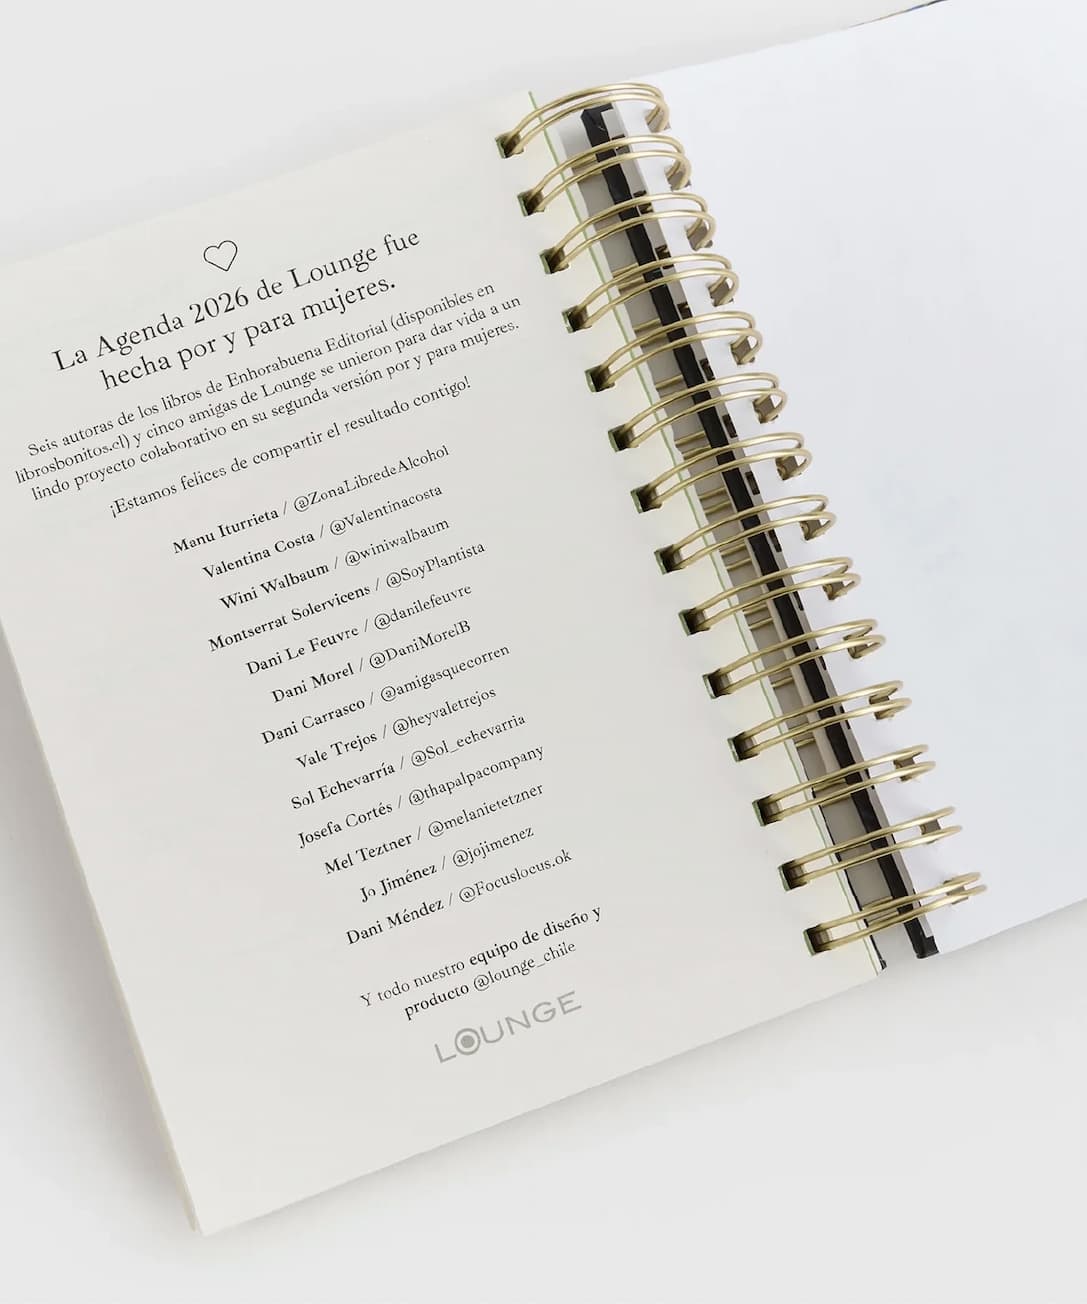 La Agenda 2026 de Lounge fue
hecha por y para mujeres.
Seis autoras de los libros de Enhorabuena Editorial (disponibles en
librosbonitos.cl) y cinco amigas de Lounge se unieron para dar vida a un
lindo proyecto colaborativo en su segunda versión por y para mujeres.
¡Estamos felices de compartir el resultado contigo!
Manu Iturrieta / @ZonaLibredeAlcohol
Valentina Costa / @Valentinacosta
Wini Walbaum / @winiwalbaum
Montserrat Solervicens / @SoyPlantista
Dani Le Feuvre / @danilefeuvre
Dani Morel / @DaniMorelB
Dani Carrasco / @amigasquecorren
Vale Trejos / @heyvaletrejos
Sol Echevarría / @Sol_echevarria
Josefa Cortés / @thapalpacompany
Mel Teztner / @melanietetzner
Jo Jiménez / @jojimenez
Dani Méndez / @Focuslocus.ok
Y todo nuestro equipo de diseño y
producto @lounge_chile
LOUNGE